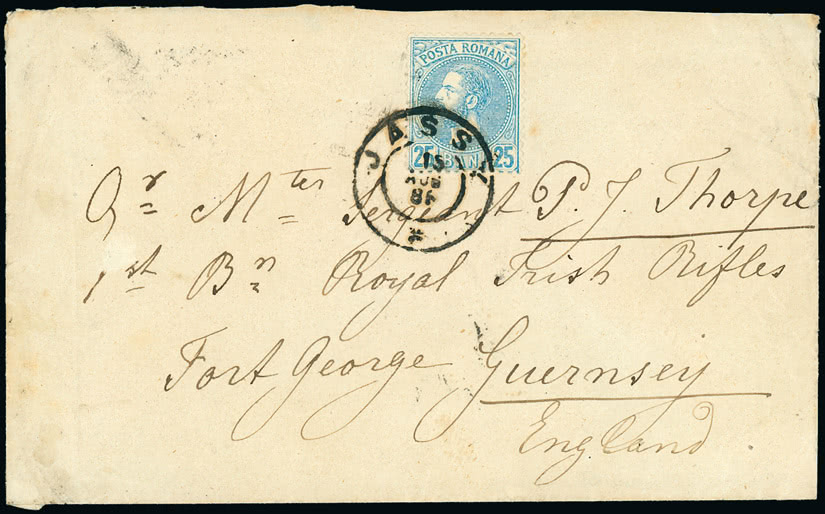 POSTA ROMANA
25 BANI 25
JASSY
15
AUG
86
Qr Mter Sergeant P. J. Thorpe
1st Bn Royal Irish Rifles
Fort George Guernsey
England